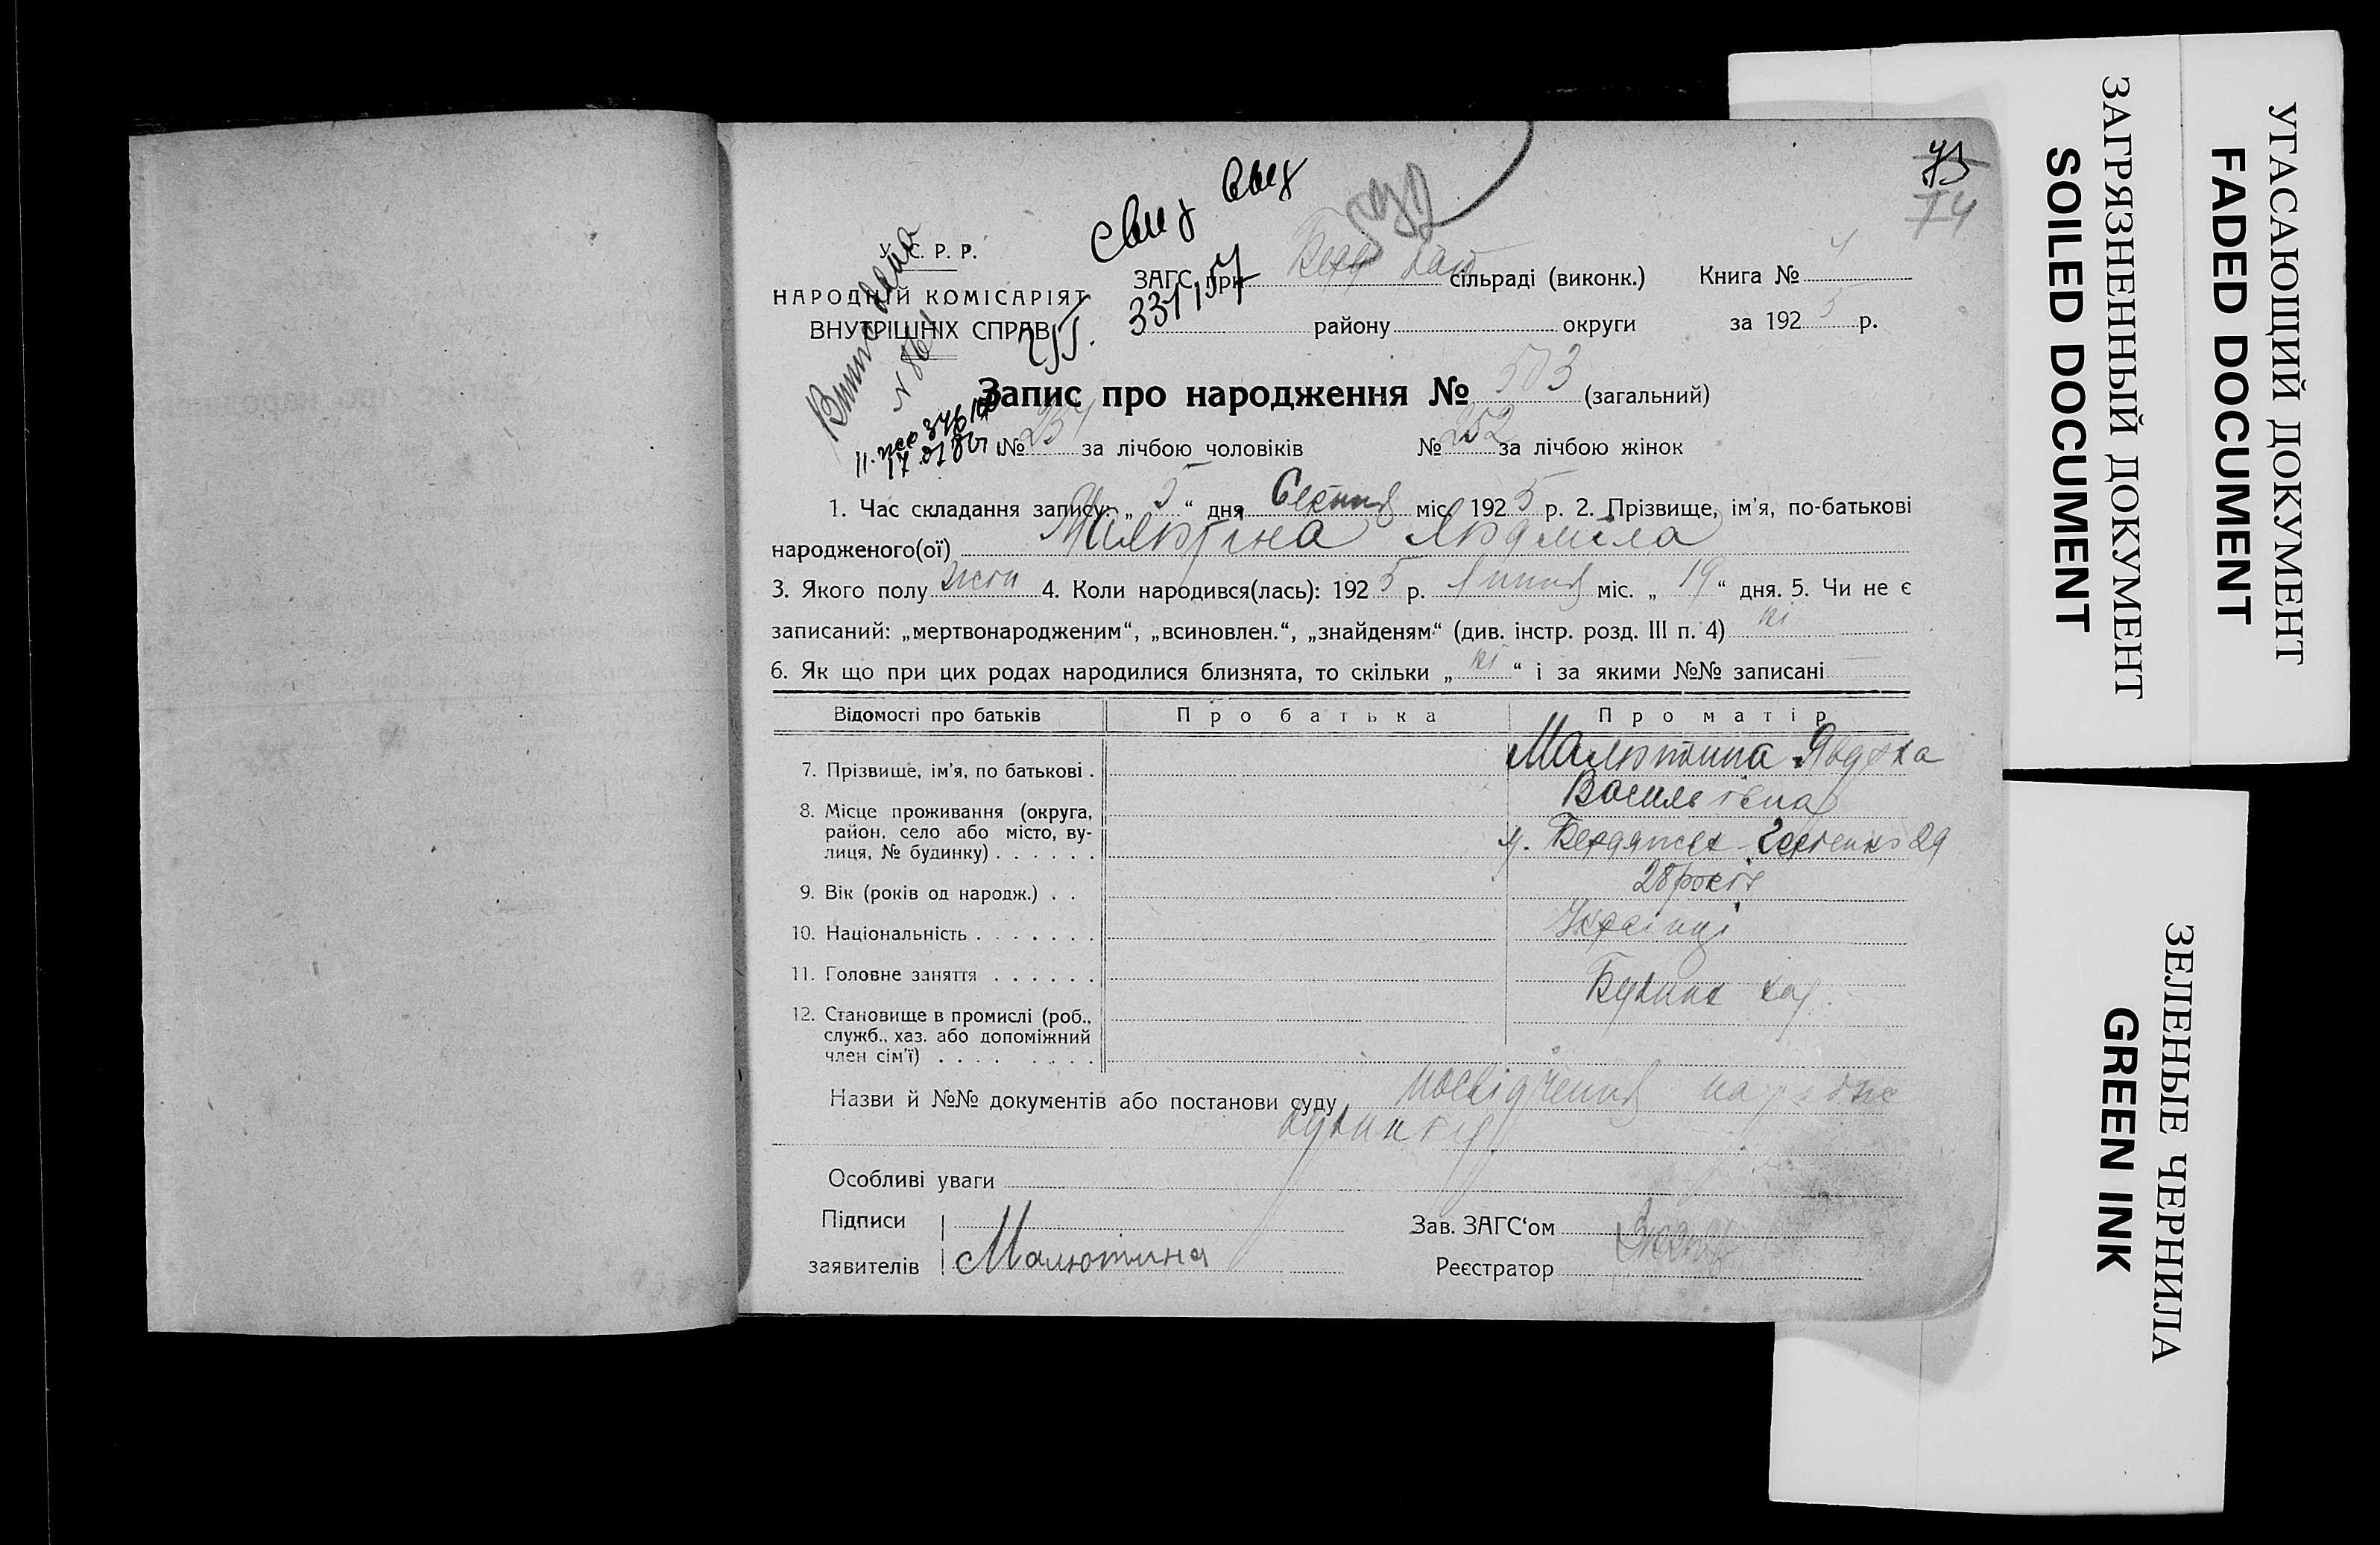 75
74
свид выд
У. С. Р. Р.
НАРОДНІЙ КОМІСАРІЯТ
ВНУТРІШНІХ СПРАВ
ЗАГС при сільраді (виконк.) Книга № 4
району округи за 1925 р.
Запис про народження № 503 (загальний)
№ 251 за лічбою чоловіків № 252 за лічбою жінок
1. Час складання запису: „ 5 “ дня Серпня міс. 1925 р. 2. Прізвище, ім'я, по-батькові
народженого(ої) Малютіна Людміла
3. Якого полу жін 4. Коли народився(лась): 1925 р. Липня міс. „ 19 “ дня. 5. Чи не є
записаний: „мертвонародженим“, „всиновлен.“, „знайденям“ (див. інстр. розд. III п. 4) ні
6. Як що при цих родах народилися близнята, то скільки „ ні “ і за якими №№ записані
Відомості про батьків Про батька Про матір
7. Прізвище, ім'я, по батькові . Малютина Явдоха
Васильівна
8. Місце проживання (округа,
район, село або місто, ву-
лиця, № будинку) . . . . . . 29
9. Вік (років од народж.) . . 28 років
10. Національність . . . . . . .
11. Головне заняття . . . . . .
12. Становище в промислі (роб.,
служб., хаз. або допоміжний
член сім'ї) . . . . . . . .
Назви й №№ документів або постанови суду посвідчення
будинку
Особливі уваги
Підписи
заявителів Малютина
Зав. ЗАГС'ом
Реєстратор
УГАСАЮЩИЙ ДОКУМЕНТ
FADED DOCUMENT
ЗАГРЯЗНЕННЫЙ ДОКУМЕНТ
SOILED DOCUMENT
ЗЕЛЕНЫЕ ЧЕРНИЛА
GREEN INK